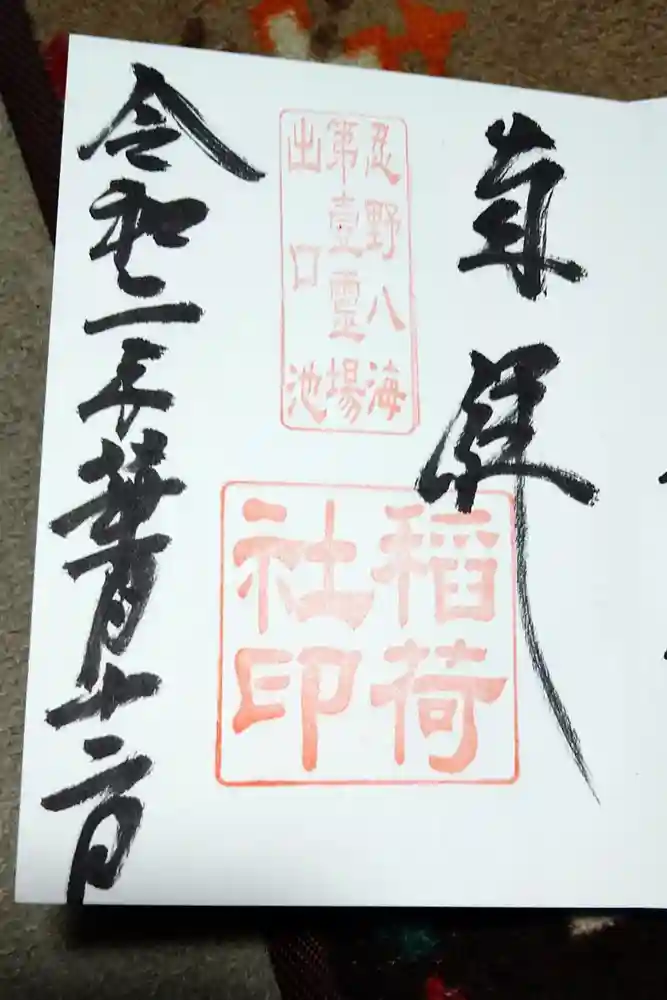 忍野八海
第壹霊場
出口池
稲荷
社印
令和二年華月十二日